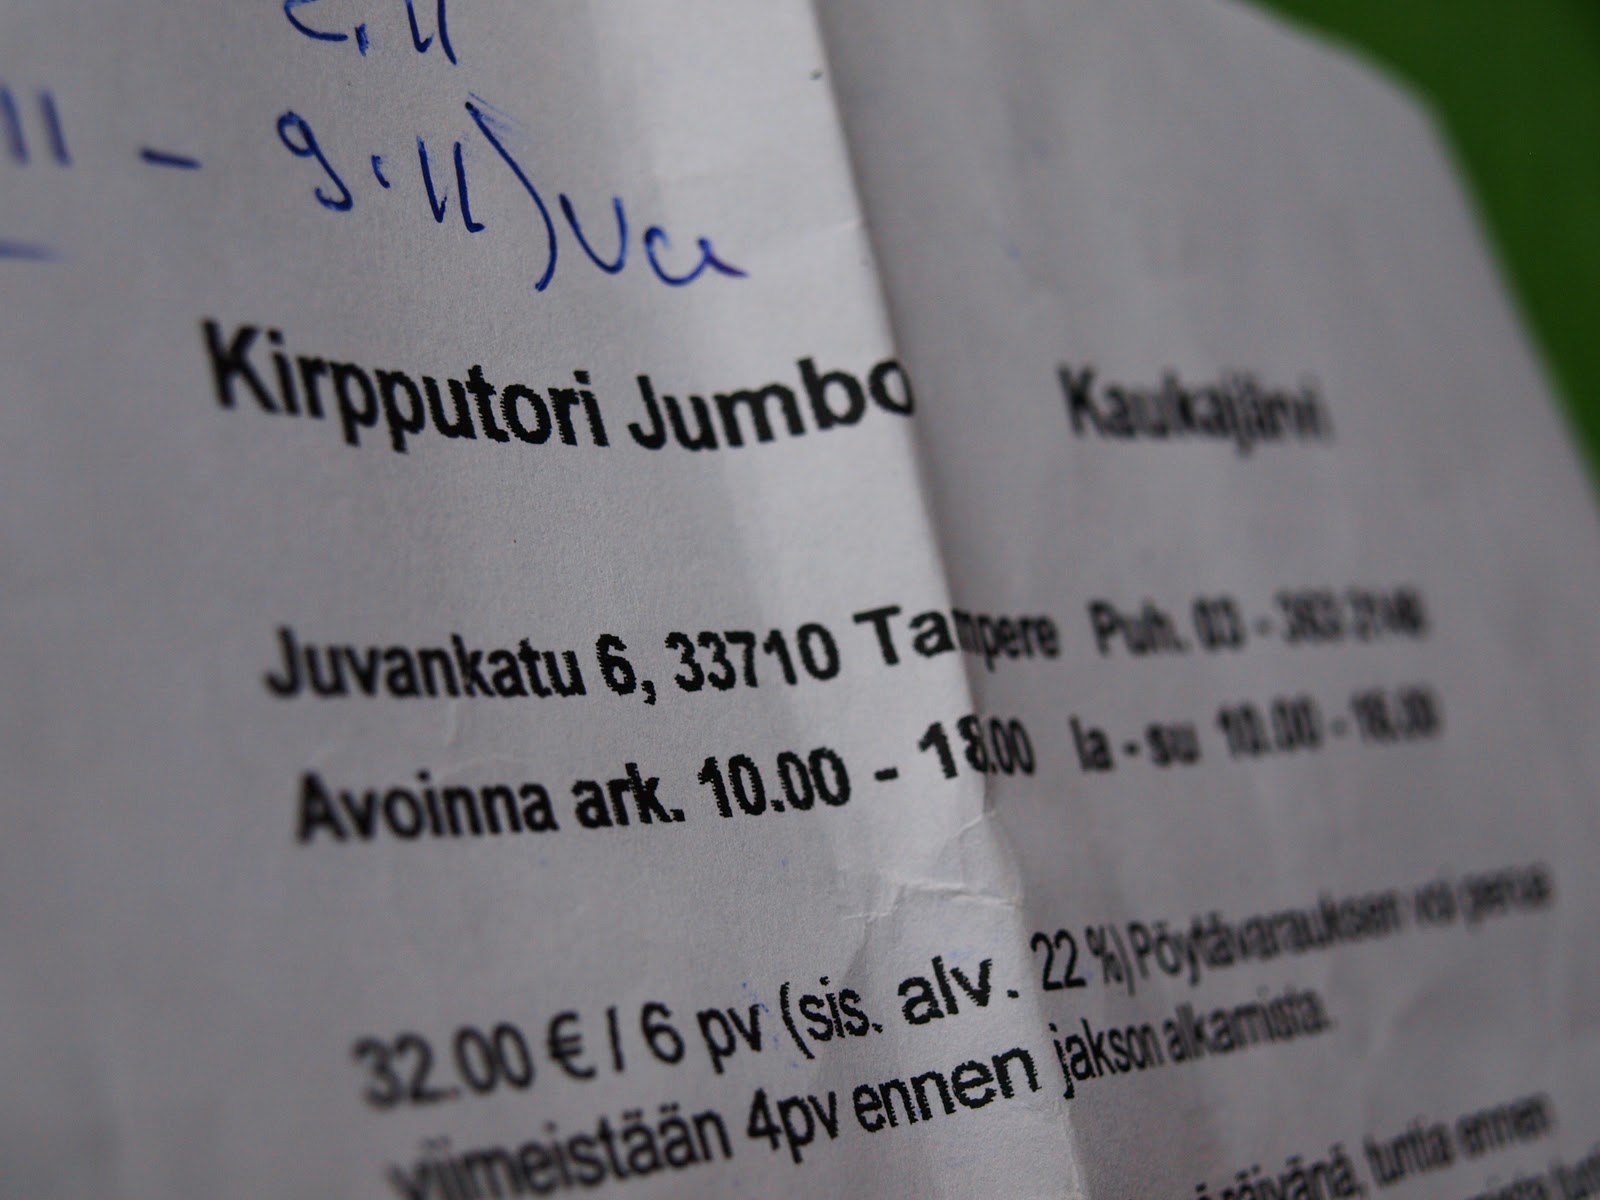 11 - 9.11)
Kirpputori Jumbo Kaukajärvi
Juvankatu 6, 33710 Tampere Puh. 03 -
Avoinna ark. 10.00 - 18.00 la - su 10.00 - 16.00
32.00 € / 6 pv (sis. alv. 22 %) Pöytävarauksen voi perua
viimeistään 4pv ennen jakson alkamista.
päivänä, tuntia ennen